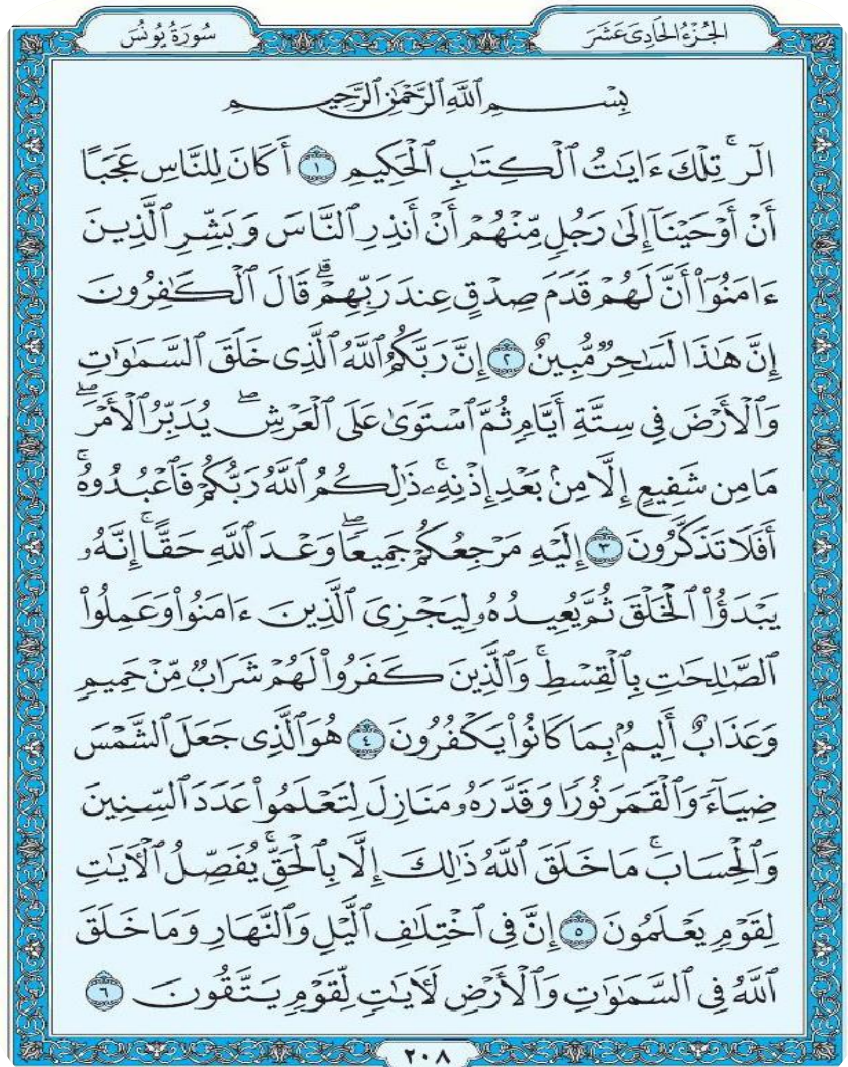 الجُزْءُ الحَادِيَ عَشَرَ
سُورَةُ يُونُسَ
بِسْمِ ٱللَّهِ ٱلرَّحْمَٰنِ ٱلرَّحِيمِ
الٓر ۚ تِلْكَ ءَايَٰتُ ٱلْكِتَٰبِ ٱلْحَكِيمِ ١ أَكَانَ لِلنَّاسِ عَجَبًا
أَنْ أَوْحَيْنَآ إِلَىٰ رَجُلٍ مِّنْهُمْ أَنْ أَنذِرِ ٱلنَّاسَ وَبَشِّرِ ٱلَّذِينَ
ءَامَنُوٓا۟ أَنَّ لَهُمْ قَدَمَ صِدْقٍ عِندَ رَبِّهِمْ ۗ قَالَ ٱلْكَٰفِرُونَ
إِنَّ هَٰذَا لَسَٰحِرٌ مُّبِينٌ ٢ إِنَّ رَبَّكُمُ ٱللَّهُ ٱلَّذِى خَلَقَ ٱلسَّمَٰوَٰتِ
وَٱلْأَرْضَ فِى سِتَّةِ أَيَّامٍ ثُمَّ ٱسْتَوَىٰ عَلَى ٱلْعَرْشِ ۖ يُدَبِّرُ ٱلْأَمْرَ ۖ
مَا مِن شَفِيعٍ إِلَّا مِنۢ بَعْدِ إِذْنِهِۦ ۚ ذَٰلِكُمُ ٱللَّهُ رَبُّكُمْ فَٱعْبُدُوهُ ۚ
أَفَلَا تَذَكَّرُونَ ٣ إِلَيْهِ مَرْجِعُكُمْ جَمِيعًا ۖ وَعْدَ ٱللَّهِ حَقًّا ۚ إِنَّهُۥ
يَبْدَؤُا۟ ٱلْخَلْقَ ثُمَّ يُعِيدُهُۥ لِيَجْزِىَ ٱلَّذِينَ ءَامَنُوا۟ وَعَمِلُوا۟
ٱلصَّٰلِحَٰتِ بِٱلْقِسْطِ ۚ وَٱلَّذِينَ كَفَرُوا۟ لَهُمْ شَرَابٌ مِّنْ حَمِيمٍ
وَعَذَابٌ أَلِيمٌۢ بِمَا كَانُوا۟ يَكْفُرُونَ ٤ هُوَ ٱلَّذِى جَعَلَ ٱلشَّمْسَ
ضِيَآءً وَٱلْقَمَرَ نُورًا وَقَدَّرَهُۥ مَنَازِلَ لِتَعْلَمُوا۟ عَدَدَ ٱلسِّنِينَ
وَٱلْحِسَابَ ۚ مَا خَلَقَ ٱللَّهُ ذَٰلِكَ إِلَّا بِٱلْحَقِّ ۚ يُفَصِّلُ ٱلْءَايَٰتِ
لِقَوْمٍ يَعْلَمُونَ ٥ إِنَّ فِى ٱخْتِلَٰفِ ٱلَّيْلِ وَٱلنَّهَارِ وَمَا خَلَقَ
ٱللَّهُ فِى ٱلسَّمَٰوَٰتِ وَٱلْأَرْضِ لَءَايَٰتٍ لِّقَوْمٍ يَتَّقُونَ ٦
٢٠٨